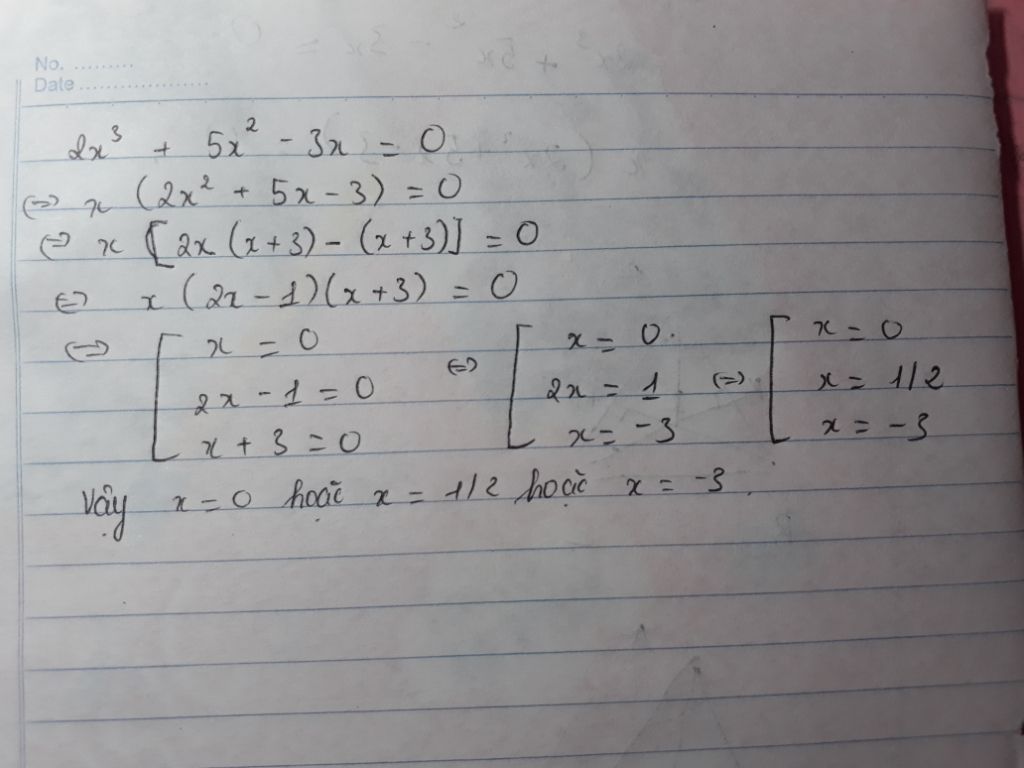 No. .........
Date ...................
2x³ + 5x² - 3x = 0
⇔ x (2x² + 5x - 3) = 0
⇔ x [2x (x+3) - (x+3)] = 0
⇔ x (2x - 1)(x+3) = 0
⇔ [ x = 0 ⇔ [ x = 0. ⇔ [ x = 0
2x - 1 = 0 2x = 1 x = 1/2
x + 3 = 0 x = -3 x = -3
Vậy x = 0 hoặc x = 1/2 hoặc x = -3.